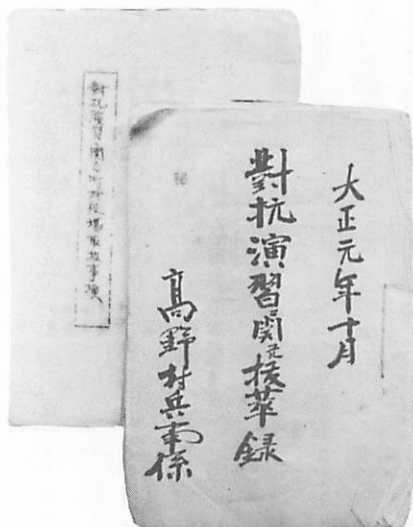 大正元年十月
對抗演習ニ関スル抜萃録
秘
高野村兵事係
對抗演習ニ関シ町村役場取扱事項